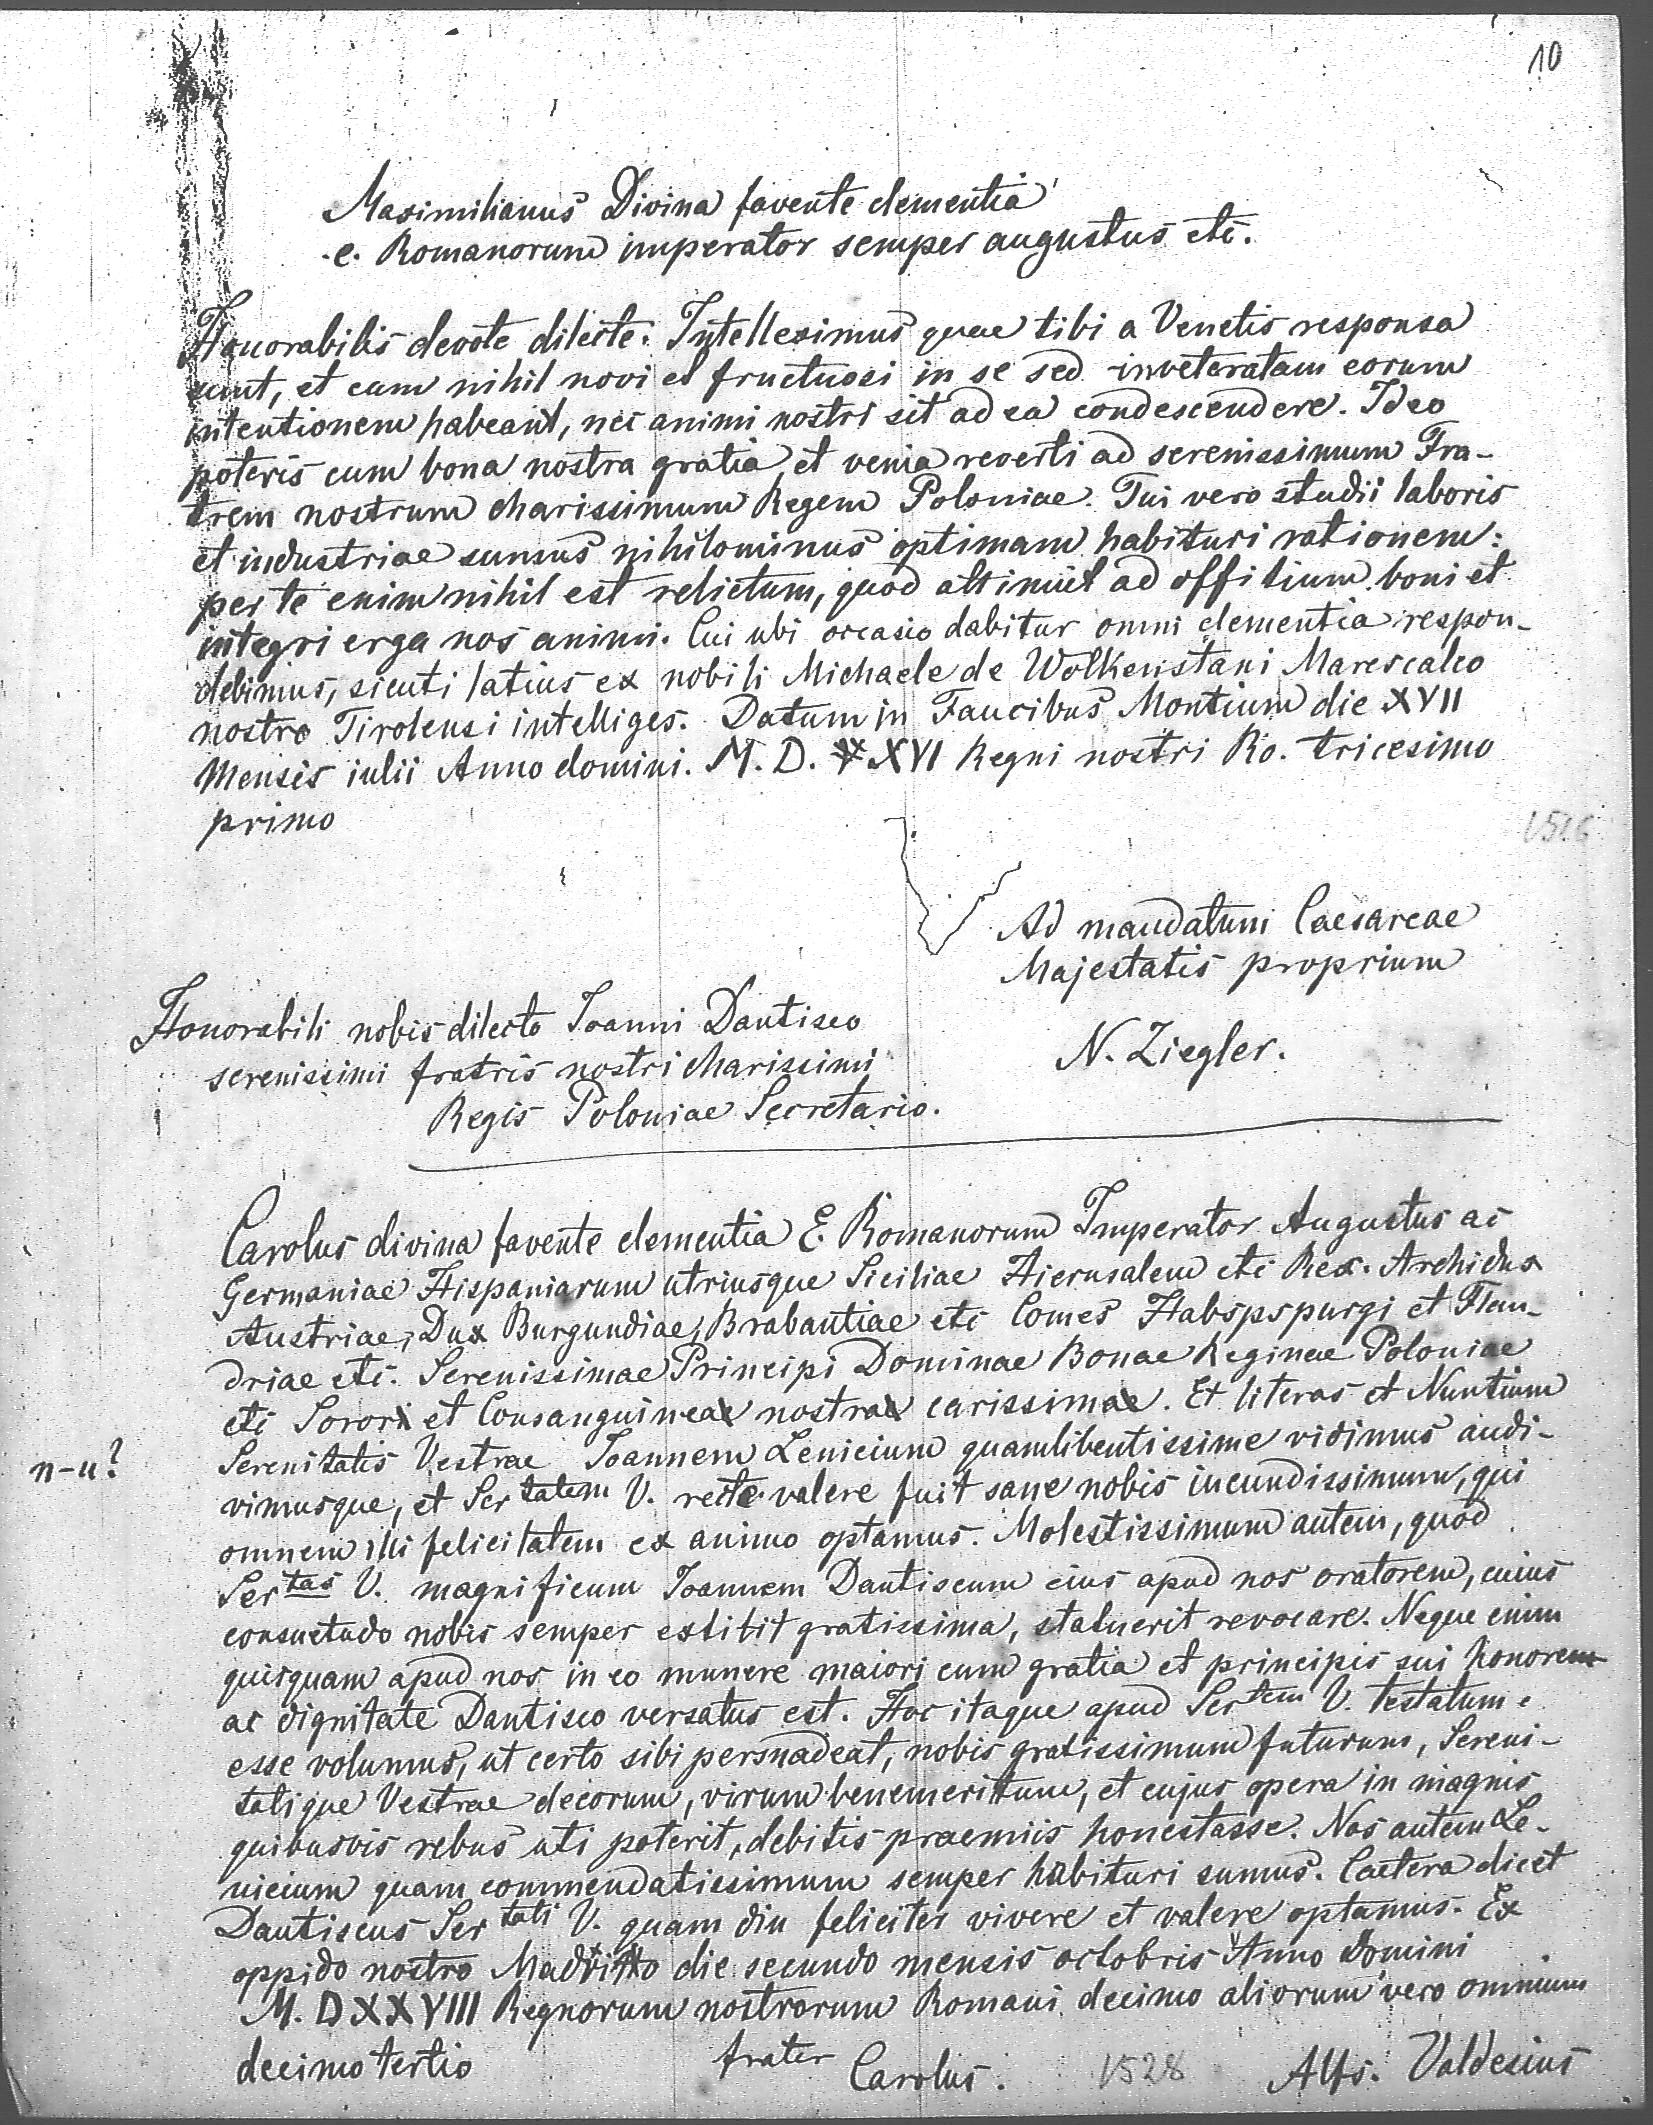 10
Maximilianus Divina favente clementia
e. Romanorum imperator semper augustus etc.
Honorabilis devote dilecte. Intelleximus quae tibi a Venetis responsa
sunt, et cum nihil novi et fructuosi in se sed inveteratam eorum
intentionem habeant, nec animi nostri sit ad ea condescendere. Ideo
poteris cum bona nostra gratia et venia reverti ad serenissimum Fra-
trem nostrum charissimum Regem Poloniae. Tui vero studii laboris
et industriae sumus nihilominus optimam habituri rationem:
per te enim nihil est relictum, quod attinuit ad offitium boni et
integri erga nos animi. Cui ubi occasio dabitur omni clementia respon-
debimus, sicuti latius ex nobili Michaele de Wolkenstani Marescalco
nostro Tirolensi intelliges. Datum in Faucibus Montium die XVII
Mensis iulii Anno domini. M. D. XVI Regni nostri Ro. tricesimo
primo
1516
Ad mandatum Caesareae
Majestatis proprium
Honorabili nobis dilecto Joanni Dantisco
N. Ziegler.
serenissimi fratris nostri charissimi
Regis Poloniae Secretario.
Carolus divina favente clementia E. Romanorum Imperator Augustus ac
Germaniae Hispaniarum utriusque Siciliae Hierusalem etc Rex. Archidux
Austriae, Dux Burgundiae, Brabantiae etc Comes Habspspurgi et Flan-
driae etc. Serenissimae Principi Dominae Bonae Reginae Poloniae
etc Sorori et Consanguineae nostrae carissimae. Et literas et Nuntium
n-u?
Serenitatis Vestrae Joannem Lenicium quamlibentissime vidimus audi-
vimusque, et Ser tatem V. recte valere fuit sane nobis iucundissimum, qui
omnem illi felicitatem ex animo optamus. Molestissimum autem, quod
Ser tas V. magnificum Joannem Dantiscum eius apud nos oratorem, cuius
consuetudo nobis semper extitit gratissima, statuerit revocare. Neque enim
quisquam apud nos in eo munere maiori cum gratia et principis sui honorem
ac dignitate Dantisco versatus est. Hoc itaque apud Ser tem V. testatum
esse volumus, ut certo sibi persuadeat, nobis gratissimum futurum, Sereni-
tatique Vestrae decorum, virum benemeritum, et cujus opera in magnis
quibusvis rebus uti poterit, debitis praemiis honestasse. Nos autem Le-
nicium quam commendatissimum semper habituri sumus. Caetera dicet
Dantiscus Ser tati V. quam diu feliciter vivere et valere optamus. Ex
oppido nostro die secundo mensis octobris Anno Domini
M. D XXVIII Regnorum nostrorum Romani decimo aliorum vero omnium
decimo tertio
frater Carolus.
1528
Alfs. Valdesius